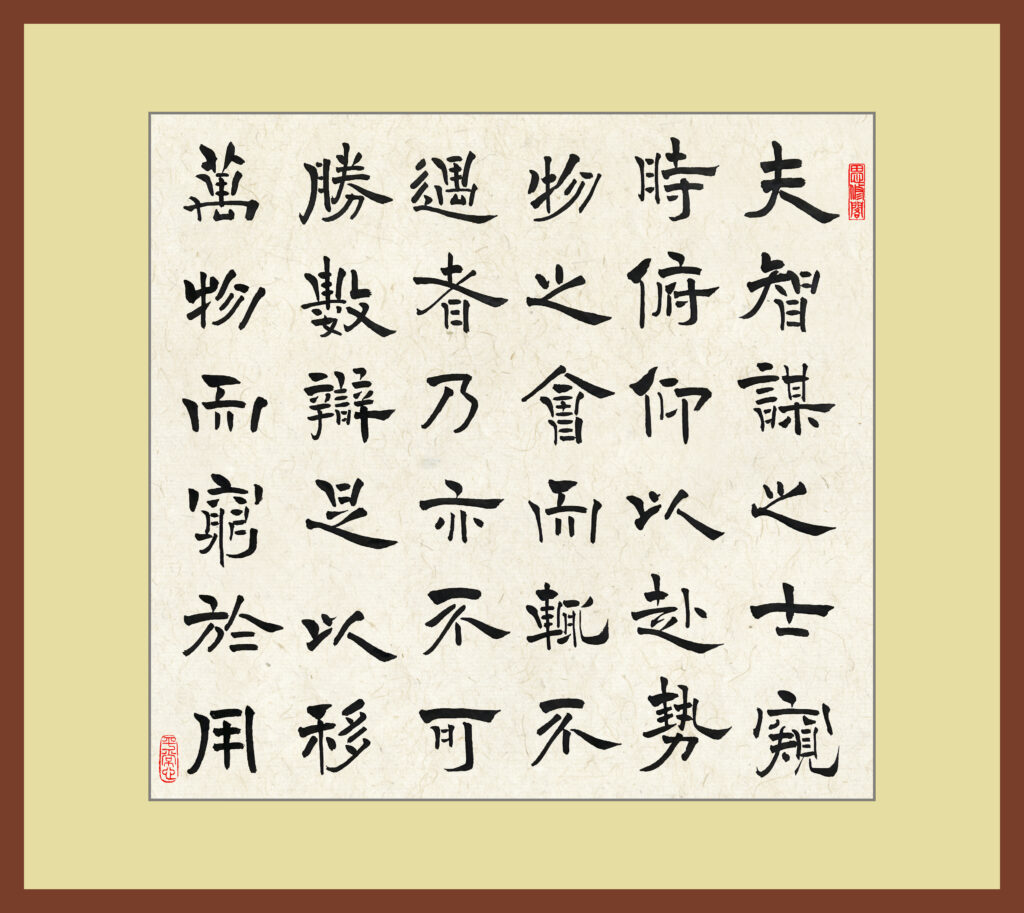 思修閣
夫智謀之士窺
時俯仰以赴勢
物之會而輒不
遇者乃亦不可
勝數辯足以移
萬物而窮於用